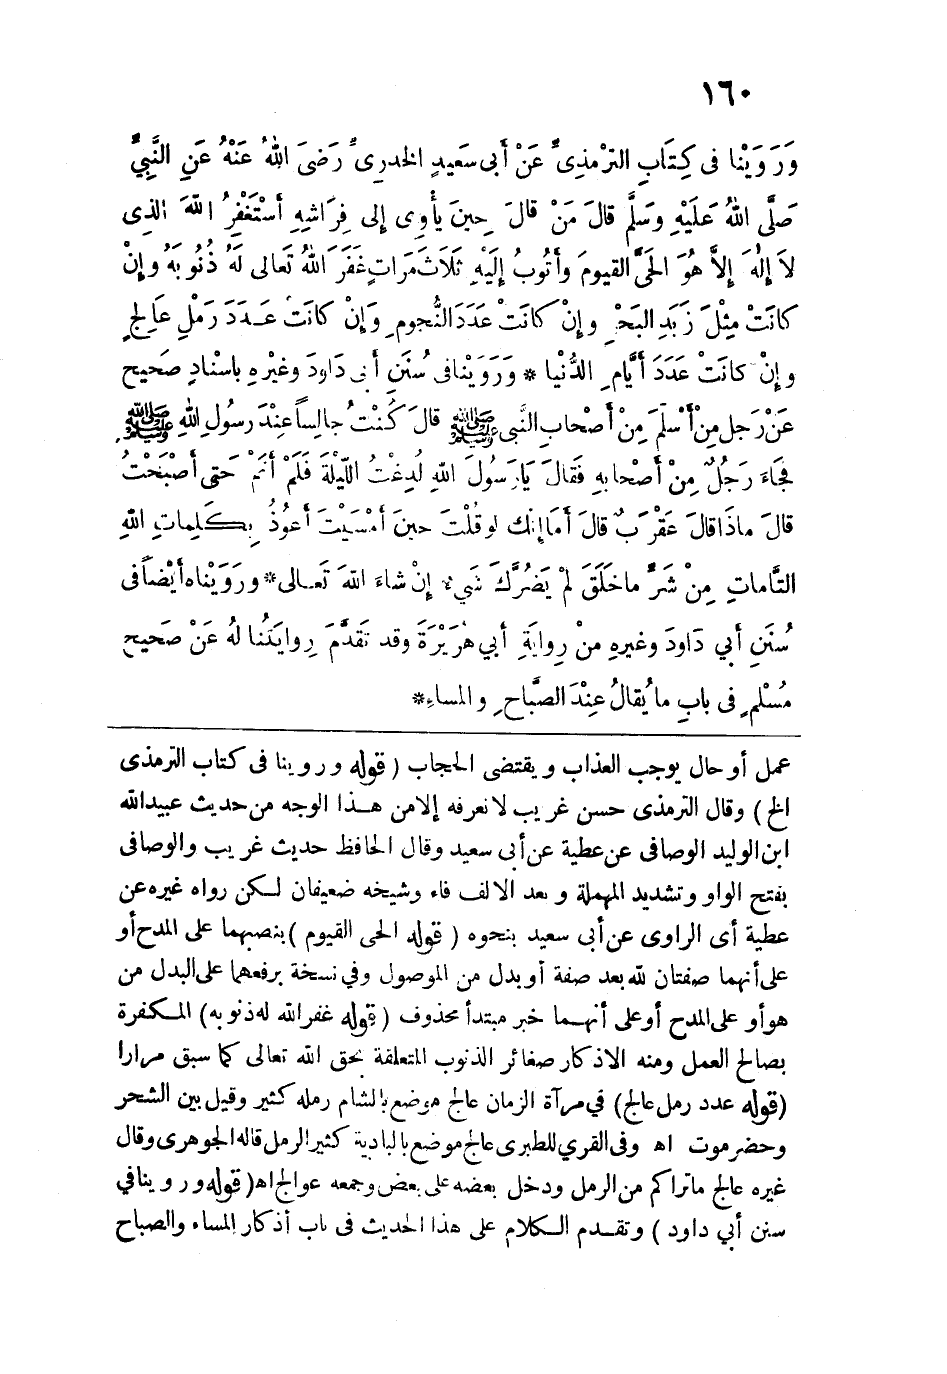 ١٦٠
وَرَوَيْنا فى كِتَابِ الترمذىِّ عَنْ أَبى سَعيدٍ الخدرىِّ رَضىَ اللهُ عَنْهُ عَنِ النَّبِيِّ
صَلَّى اللهُ عَلَيْهِ وَسَلَّم قالَ مَنْ قالَ حِينَ يأْوِى إلى فِرَاشِهِ أَسْتَغْفِرُ اللهَ الذِى
لاَ إِلٰهَ إلاَّ هُوَ الحَيَّ القيومَ وأَتُوبُ إلَيْهِ ثَلاَثَ مَراتٍ غَفَرَ اللهُ تَعالى لَهُ ذُنُوبَهُ وإنْ
كانَتْ مِثْلَ زَبَدِ البَحْرِ وإنْ كانَتْ عَدَدَ النُّجومِ وَإنْ كانَتْ عَـدَدَ رَمْلِ عَالِجٍ
وإنْ كانَتْ عَدَدَ أَيَّامِ الدُّنْيا * وَرَوَيْنا فى سُنَنِ أَبى دَاودَ وغَيْرِهِ باسْنادٍ صَحيح
عَنْ رَجلٍ مِنْ أَسْلَمَ مِنْ أَصْحابِ النَّبى ﷺ قالَ كُنْتُ جالِساً عِنْدَ رسُولِ اللهِ ﷺ
فجَاءَ رَجُلٌ مِنْ أَصْحابِهِ فَقالَ يَارَسُولَ اللهِ لُدِغْتُ اللَّيْلَةَ فَلَمْ أَنَمْ حَتى أَصْبَحْتُ
قالَ ماذَا قالَ عَقْرَبٌ قالَ أَمَا إِنكَ لو قُلْتَ حينَ أَمْسَيْتَ أَعُوذُ بِكَلِماتِ اللهِ
التَّاماتِ مِنْ شَرِّ ما خَلَقَ لَمْ يَضُرَّكَ شَيْء إنْ شاءَ اللهَ تَعـالى * ورَوَيْناه أيضاً فى
سُنَنِ أَبي دَاودَ وغيرِهِ منْ رِوايَةِ أَبي هُرَيْرَةَ وقد تَقَدَّمَ رِوايَتُنا لَهُ عَنْ صَحيحِ
مُسْلمٍ فى بابِ ما يُقالُ عِنْدَ الصَّباحِ والمساءِ *
عمل أو حال يوجب العذاب ويقتضى الحجاب ( قوله وروينا فى كتاب الترمذى
الخ ) وقال الترمذى حسن غريب لا نعرفه إلا من هـذا الوجه من حديث عبيد الله
ابن الوليد الوصافى عن عطية عن أبى سعيد وقال الحافظ حديث غريب والوصافى
بفتح الواو وتشديد المهملة وبعد الالف فاء وشيخه ضعيفان لـكن رواه غيره عن
عطية أى الراوى عن أبى سعيد بنحوه ( قوله الحى القيوم ) بنصبهما على المدح أو
على أنهما صفتان لله بعد صفة أو بدل من الموصول وفي نسخة برفعهما على البدل من
هو أو على المدح أو على أنهـما خبر مبتدأ محذوف ( قوله غفر الله له ذنوبه ) المـكفرة
بصالح العمل ومنه الاذكار صغائر الذنوب المتعلقة بحق الله تعالى كما سبق مرارا
( قوله عدد رمل عالج ) في مرآة الزمان عالج موضع بالشام رمله كثير وقيل بين الشحر
وحضرموت اه وفى القري للطبرى عالج موضع بالبادية كثير الرمل قاله الجوهرى وقال
غيره عالج ما تراكم من الرمل ودخل بعضه على بعض وجمعه عوالج اه ( قوله وروينا في
سنن أبي داود ) وتقـدم الـكلام على هذا الحديث فى باب أذكار المساء والصباح